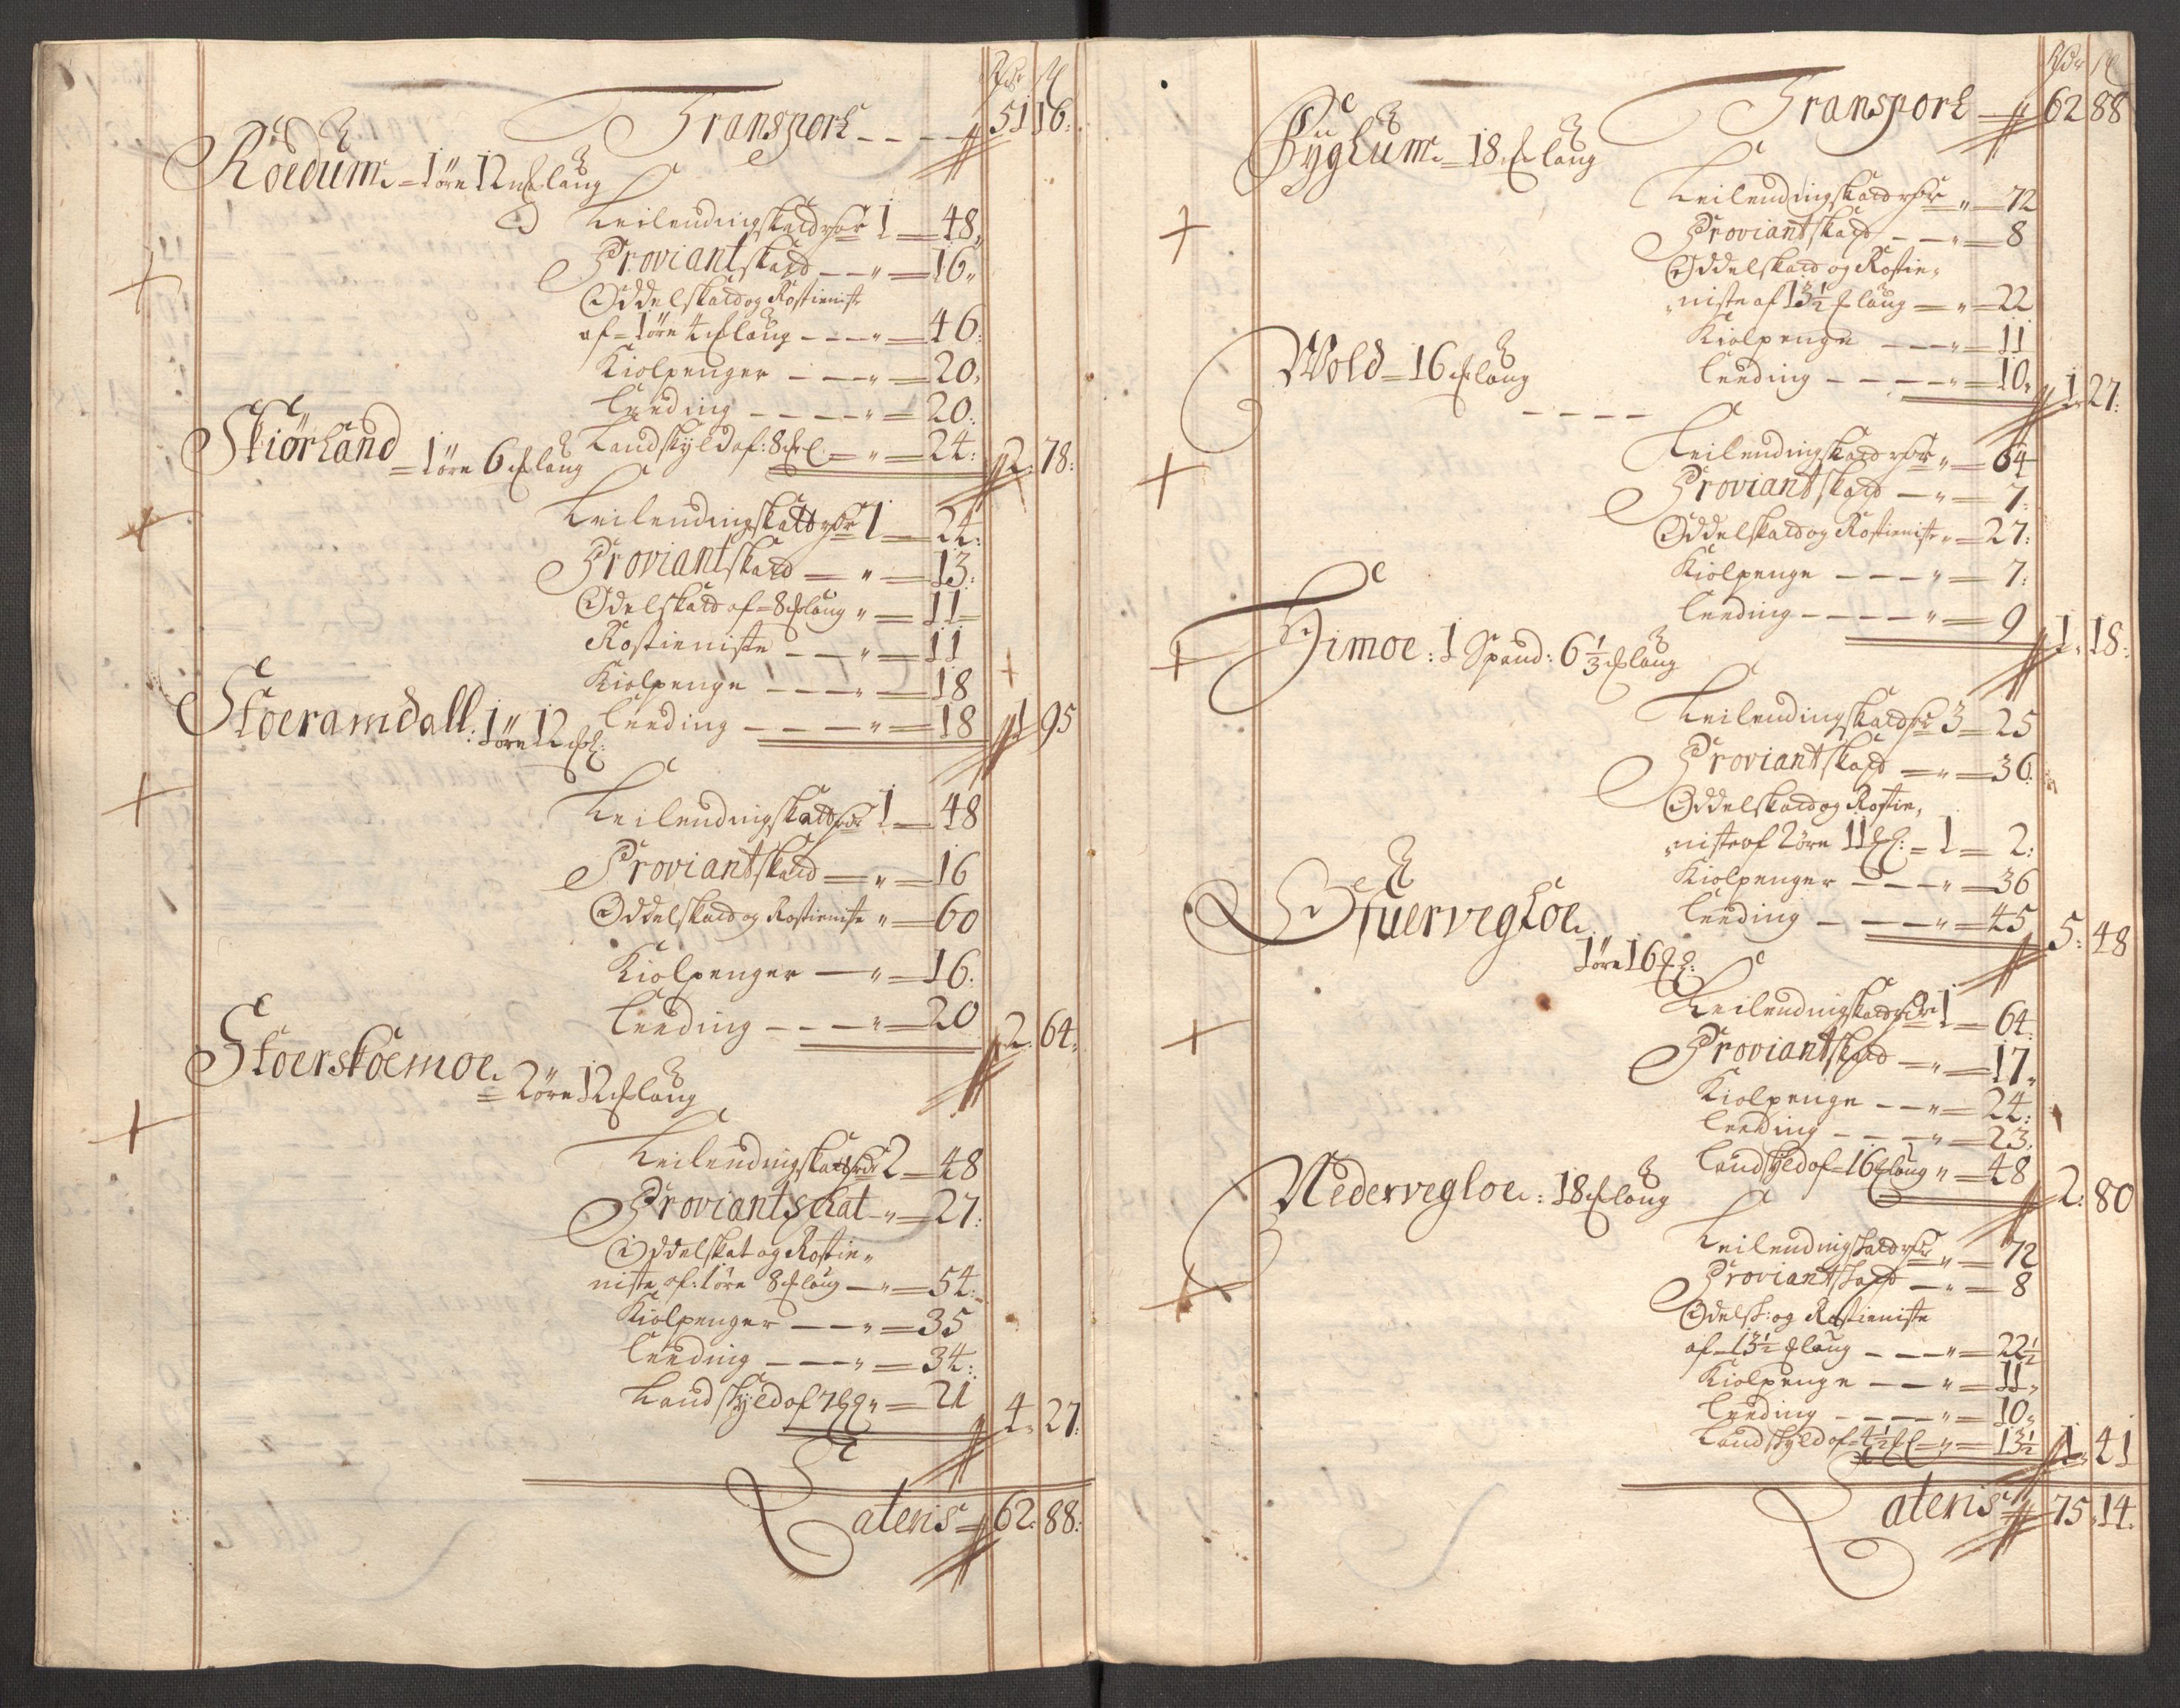 Rdr ß
Transport - - - 51 16:
Röedum = 1 öre 12 mklaug
Leilendingskatd rdr 1 = 48,
Proviantskatd - - " = 16"
Oddelskatd og Rostieniste
af = 1 öre 4 mklaug - - - " = 46:
Kiolpenger - - - " = 20,
Leeding - - - - " = 20:
Landskyld af: 8 mkl = " = 24: 2: 78:
Skiörland = 1 öre 6 mklaug
Leilendingskatt rdr 1 = 24:
Proviantskatd = " = 13:
Odelskatd af = 8 mklaug " = 11
Rostieniste - - - " = 11
Kiolpenge - - - - " = 18
Leeding - - - - " = 18 1 95
Stoeramdall: 1 öre 12 mkl:
Leilendingskatt rdr 1 = 48
Proviantskatd = " = 16
Oddelskatd og Rostieniste " = 60
Kiolpenger - " = 16:
Leeding - - - - " = 20 2: 64:
Stoerstoemoe = 2 öre 12 mklaug
Leilendingskatt rdr 2 = 48
Proviantschat - " = 27:
Oddelskat og Rostie"
niste af: 1 öre 8 mklaug - " = 54:
Kiolpenger - - - " = 35
Leeding - - - - " = 34:
Landskyld af 7 mkl " = 21 4: 27:
Lateris 62: 88:
Rdr ß
Transport - 62 88
Fyglum = 18 mklaug
Leilendingskatd rdr " = 72
Proviantskatd - - " = 8
Oddelskatd og Rostie"
"niste af 13½ mklaug = " = 22
Kiolpenge - - - " = 11
Leeding - - - - " = 10, 1 27:
Wold = 16 mklaug
Leilendingskatd rdr " = 64
Proviantskatd - " = 7:
Oddelskatd og Rostieniste " = 27:
Kiolpenge - - - " = 7:
Leeding - - - - " = 9 1: 18:
Timoe: 1 Spand: 6 1/3 mklaug
Leilendingskatd rdr 3 = 25
Proviantskatd = " = 36
Oddelskatd og Rostie,
"niste af 2 öre 11 mkl: = 1 = 2:
Kiolpenger - - - " = 36
Leeding - - - - " = 45 5: 48
Øfuervegloe
1 öre 16 mkl:
Leilendingskatd rdr 1 = 64:
Proviantskatd - " = 17"
Kiolpenge - - " = 24:
Leeding - - - - " = 23:
Landskyld af = 16 mklaug " = 48 2: 80
Nedervegloe: 18 mklaug
Leilendingskatd rdr " = 72
Proviantskatd - " = 8
Odelsk: og Rostieniste
af = 13½ mklaug - - - " = 22½
Kiolpenge - - " = 11"
Leeding - - - - " = 10"
Landskyld af = 4½ mkl = " = 13½ 1: 41
Lateris 75: 14: